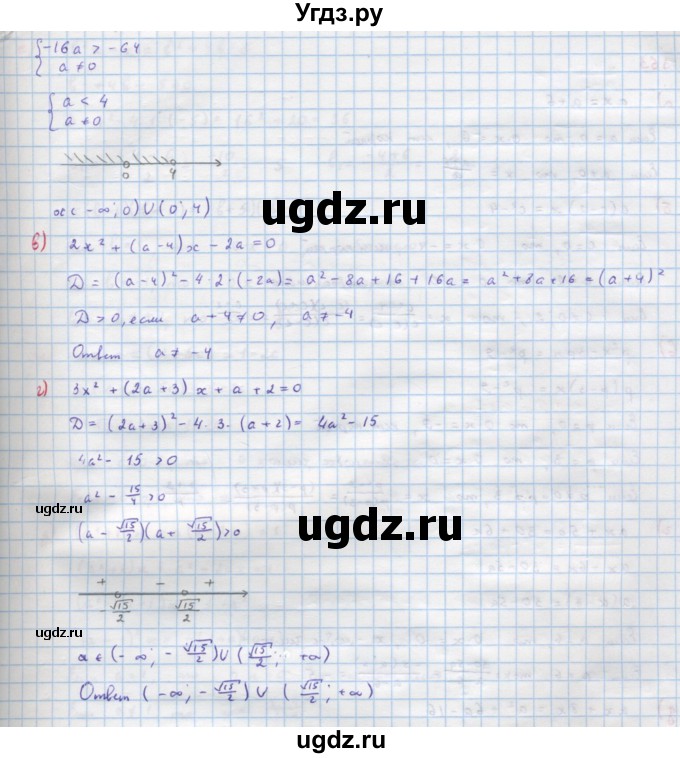 Угдз.ру
{-16a > -64
a ≠ 0
{a < 4
a ≠ 0
0 4
x ∈ -∞; 0) ∪ (0; 4)
ugdz.ru
в) 2x² + (a-4)x - 2a = 0
D = (a-4)² - 4 2·(-2a) = a² - 8a + 16 + 16a = a² + 8a + 16 = (a+4)²
D > 0, если a + 4 ≠ 0, a ≠ -4
Ответ a ≠ -4
ugdz.ru
г) 3x² + (2a+3)x + a + 2 = 0
D = (2a+3)² - 4·3·(a+2) = 4a² - 15
4a² - 15 > 0
ugdz.ru
a² - 15/4 > 0
ugdz.ru
(a - √15/2)(a + √15/2) > 0
+ - +
-√15/2 √15/2
ugdz.ru
a ∈ (-∞; -√15/2) ∪ (√15/2; +∞)
Ответ (-∞; -√15/2) ∪ (√15/2; +∞)
ugdz.ru